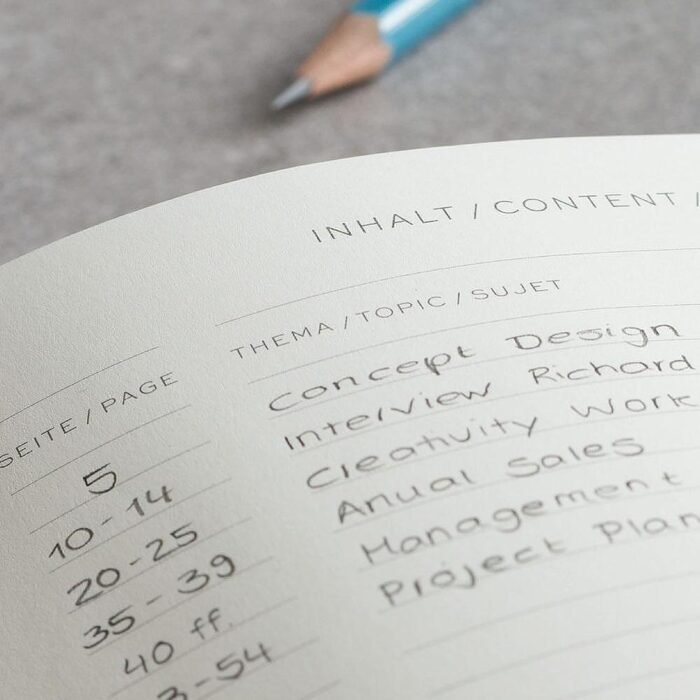 INHALT / CONTENT /
SEITE / PAGE THEMA / TOPIC / SUJET
5 Concept Design
10-14 Interview Richard
20-25 Creativity Work
35-39 Anual Sales
40 ff. Management
3-54 Project Plan